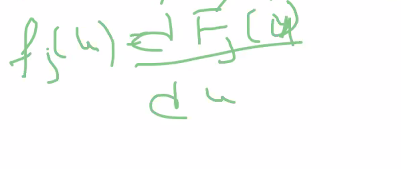 fj(u) = d Fj(u)
du